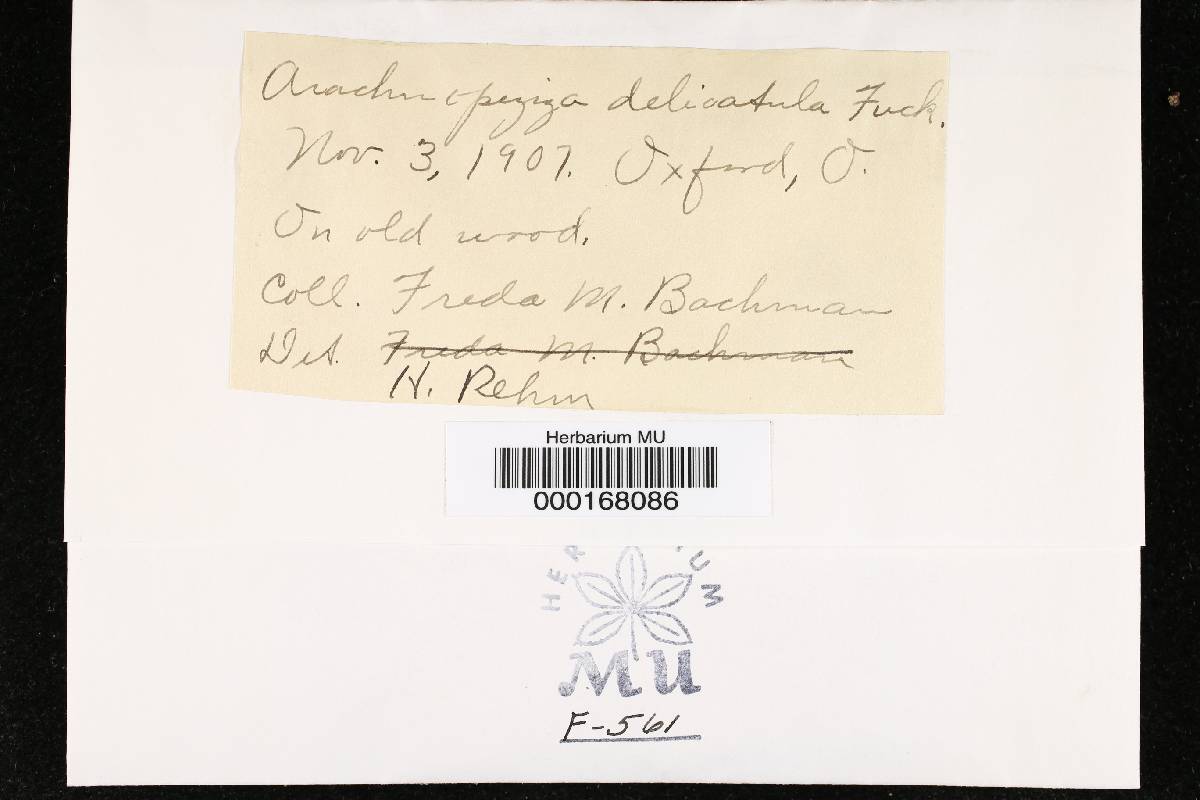 Arachnopeziza delicatula Fuck.
Nov. 3, 1907. Oxford, O.
On old wood.
Coll. Freda M. Bachman
Det. Freda M. Bachman
H. Rehm
Herbarium MU
000168086
MU
F-561